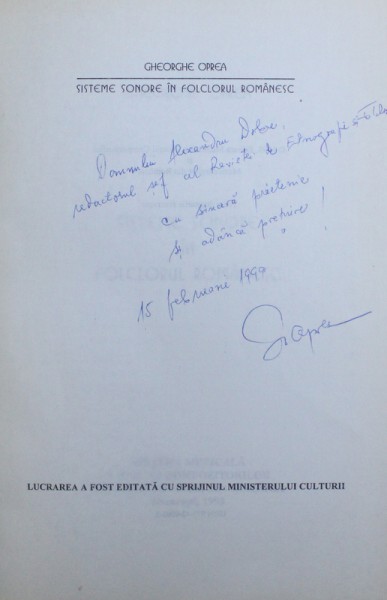 GHEORGHE OPREA
SISTEME SONORE ÎN FOLCLORUL ROMÂNESC
Domnului Alexandru Dobre,
redactorul șef al Revistei de Etnografie și
cu sinceră prietenie
și adâncă prețuire!
15 februarie 1999
Gh Oprea
LUCRAREA A FOST EDITATĂ CU SPRIJINUL MINISTERULUI CULTURII